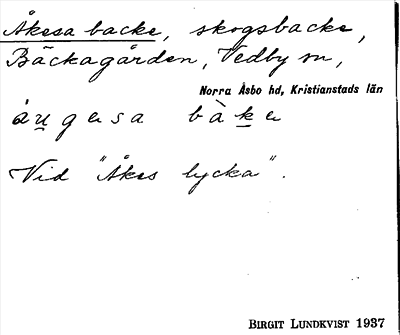 Åkesa backe, skogsbacke,
Bäckagården, Vedby sn,
Norra Åsbo hd, Kristianstads län
áu̲gesa bàk̲e
Vid "Åkes lycka".
BIRGIT LUNDKVIST 1937